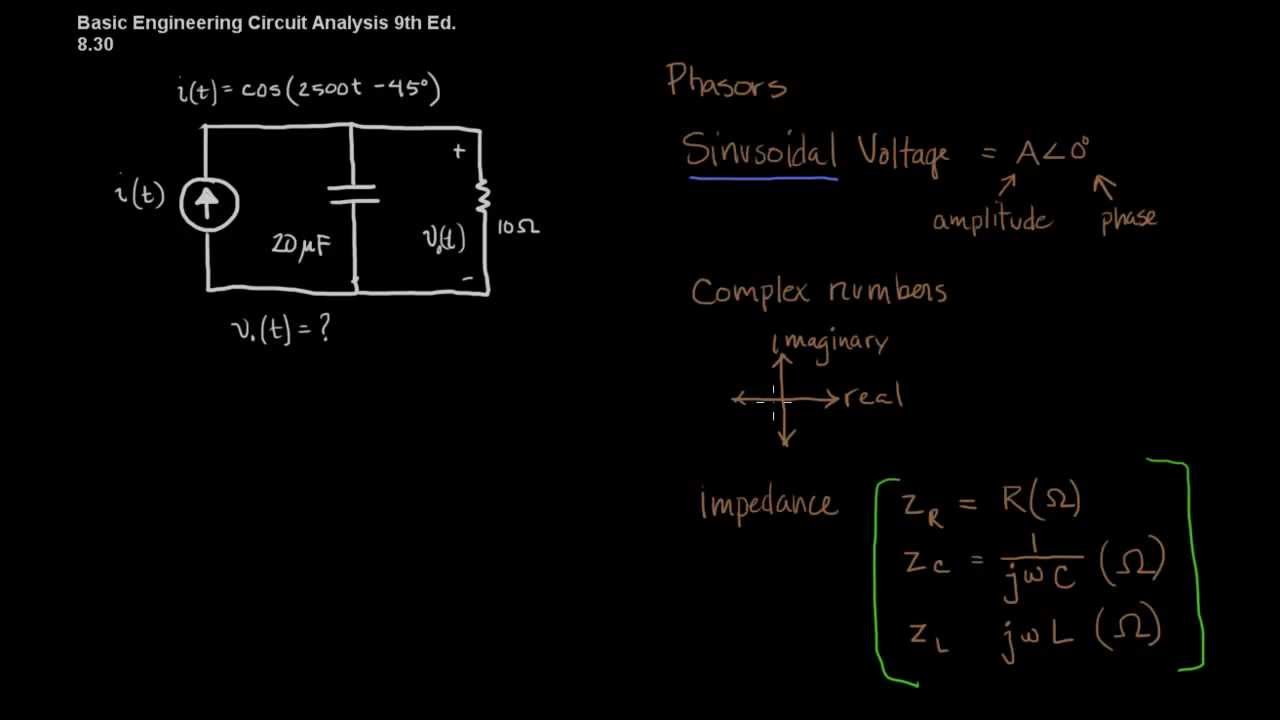 Basic Engineering Circuit Analysis 9th Ed.
8.30
i(t) = cos(2500t - 45°)
i(t)
20 μF
+
v₀(t)
-
10Ω
v₀(t) = ?
Phasors
Sinusoidal Voltage = A∠0°
amplitude
phase
Complex numbers
imaginary
real
impedance
Z_R = R(Ω)
Z_C = 1/jωC (Ω)
Z_L jωL (Ω)